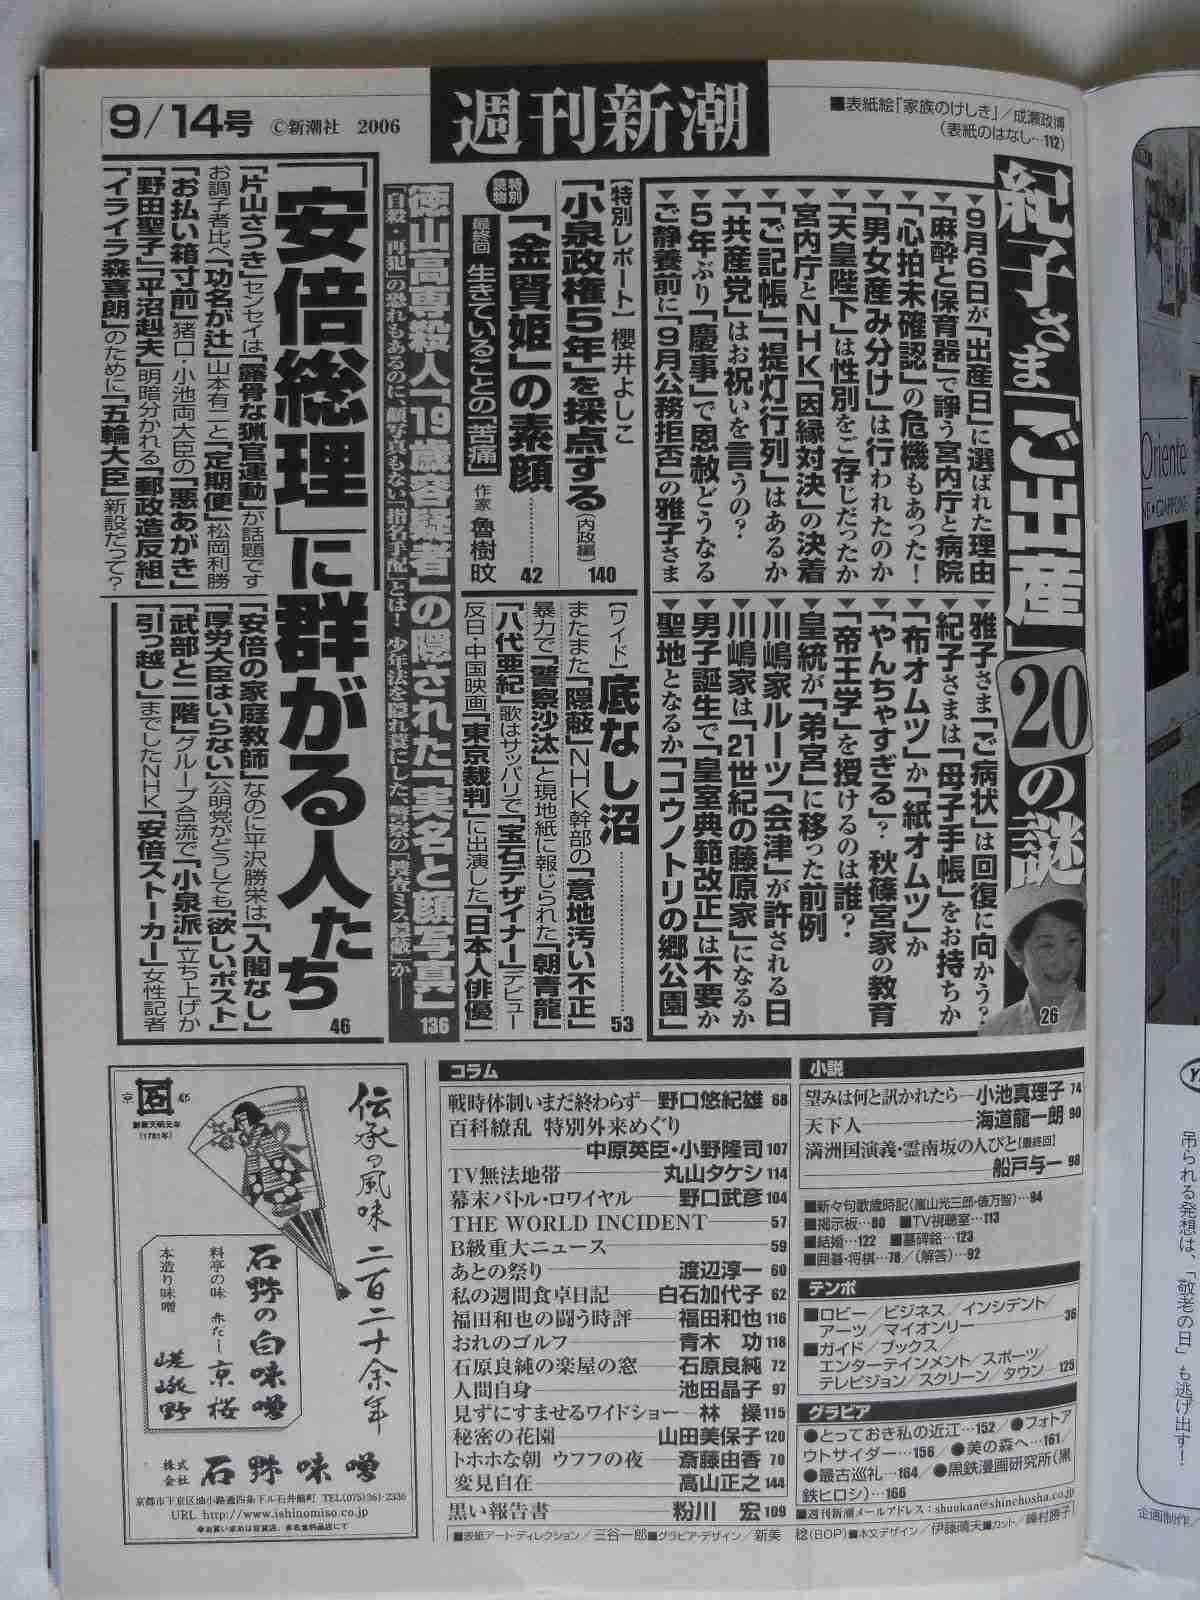 9/14号
©新潮社 2006
週刊新潮
■表紙絵「家族のけしき」/成瀬政博
(表紙のはなし…112)
紀子さま「ご出産」20の謎
26
▼9月6日が「出産日」に選ばれた理由
▼「麻酔と保育器」で諍う宮内庁と病院
▼「心拍未確認」の危機もあった!
▼「男女産み分け」は行われたのか
▼「天皇陛下」は性別をご存じだったか
▼宮内庁とNHK「因縁対決」の決着
▼「ご記帳」「提灯行列」はあるか
▼「共産党」はお祝いを言うの?
▼5年ぶり「慶事」で恩赦どうなる
▼ご静養前に「9月公務拒否」の雅子さま
▼雅子さま「ご病状」は回復に向かう?
▼紀子さまは「母子手帳」をお持ちか
▼「布オムツ」か「紙オムツ」か
▼「やんちゃすぎる」?秋篠宮家の教育
▼「帝王学」を授けるのは誰?
▼皇統が「弟宮」に移った前例
▼川嶋家ルーツ「会津」が許される日
▼川嶋家は「21世紀の藤原家」になるか
▼男子誕生で「皇室典範改正」は不要か
▼聖地となるか「コウノトリの郷公園」
【特別レポート】櫻井よしこ
「小泉政権5年」を採点する(内政編)
140
特別読物
「金賢姫」の素顔………42
最終回 生きていることの「苦痛」
作家 魯樹旼
【ワイド】底なし沼………53
またまた「隠蔽」NHK幹部の「意地汚い不正」
暴力で「警察沙汰」と現地紙に報じられた「朝青龍」
「八代亜紀」歌はサッパリで「宝石デザイナー」デビュー
反日・中国映画「東京裁判」に出演した「日本人俳優」
徳山高専殺人「19歳容疑者」の隠された「実名と顔写真」
「自殺・再犯」の恐れもあるのに、顔写真もない「指名手配」とは!少年法を隠れ蓑にした、警察の「捜査ミス隠蔽」か――
136
「安倍総理」に群がる人たち
46
「片山さつき」センセイは「露骨な猟官運動」が話題です
お調子者比べ「功名が辻」山本有二と「定期便」松岡利勝
「お払い箱寸前」猪口、小池両大臣の「悪あがき」
「野田聖子」「平沼赳夫」明暗分かれる「郵政造反組」
「イライラ森喜朗」のために「五輪大臣」新設だって?
「安倍の家庭教師」なのに平沢勝栄は「入閣なし」
「厚労大臣はいらない」公明党がどうしても「欲しいポスト」
「武部と二階」グループ合流で「小泉派」立ち上げか
「引っ越し」までしたNHK「安倍ストーカー」女性記者
小説
望みは何と訊かれたら―小池真理子 74
天下人――海道龍一朗 90
満洲国演義・霊南坂の人びと[最終回]
船戸与一 98
■新々句歌歳時記(嵐山光三郎・俵万智)…94
■掲示板…80 ■TV視聴室…113
■結婚…122 ■墓碑銘…123
■囲碁・将棋…78/(解答)…92
テンポ
■ロビー/ビジネス/インシデント/
アーツ/マイオンリー 36
■ガイド/ブックス/
エンターテインメント/スポーツ/
テレビジョン/スクリーン/タウン 125
グラビア
●とっておき私の近江…152/●フォトア
ウトサイダー…156/●美の森へ…161/
●最古巡礼…164/●黒鉄漫画研究所(黒
鉄ヒロシ)…166
■週刊新潮メールアドレス:shuukan@shinchosha.co.jp
コラム
戦時体制いまだ終わらず―野口悠紀雄 68
百科繚乱 特別外来めぐり
――中原英臣・小野隆司 107
TV無法地帯――丸山タケシ 114
幕末バトル・ロワイヤル――野口武彦 104
THE WORLD INCIDENT――57
B級重大ニュース――59
あとの祭り――渡辺淳一 60
私の週間食卓日記――白石加代子 62
福田和也の闘う時評――福田和也 116
おれのゴルフ――青木 功 118
石原良純の楽屋の窓――石原良純 72
人間自身――池田晶子 97
見ずにすませるワイドショー―林 操 115
秘密の花園――山田美保子 120
トホホな朝 ウフフの夜――斎藤由香 70
変見自在――高山正之 144
黒い報告書――粉川 宏 109
■表紙アート・ディレクション/三谷一郎■グラビア・デザイン/新美 総(BOP)■本文デザイン/伊藤晴夫■カット/峰村勝子
京都
創業天明元年
(1781年)
伝承の風味 二百二十余年
石野の白味噌
料亭の味 赤だし 京桜
本造り味噌 嵯峨野
株式会社 石野味噌
京都市下京区油小路通四条下ル石井筒町 TEL(075)361-2336
URL http://www.ishinomiso.co.jp
Oriente
吊られる発想は、「敬老の日」も逃げ出す!
企画制作/